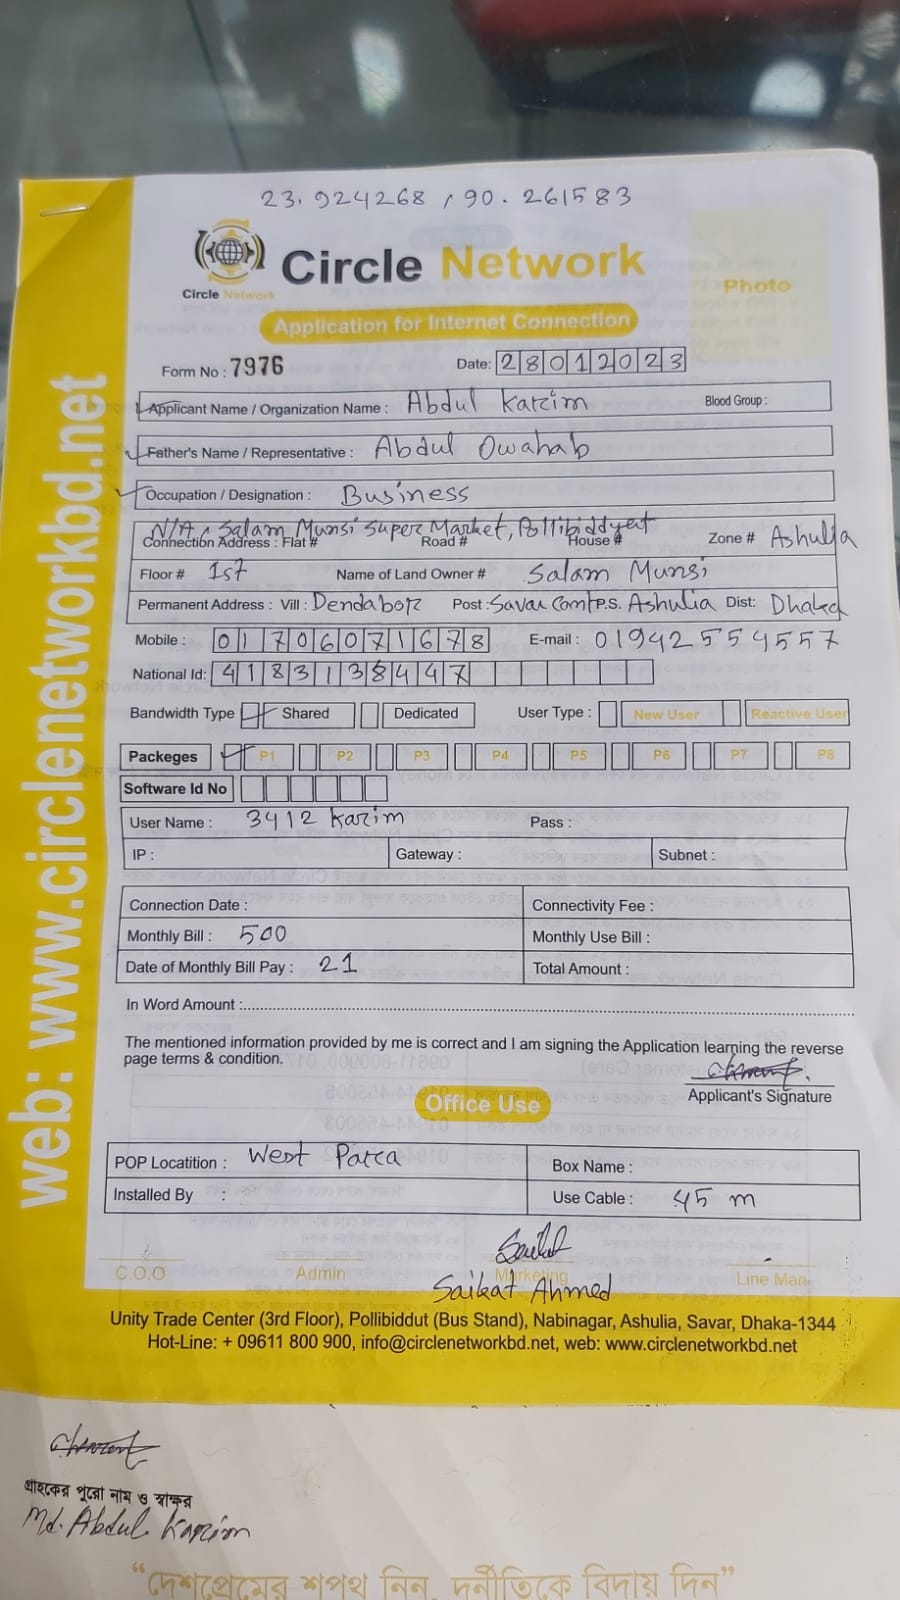 23.924268 , 90.261583
Circle Network
Circle Network
Photo
Application for Internet Connection
Form No : 7976 Date: 28012023
Applicant Name / Organization Name : Abdul Karim Blood Group :
Father's Name / Representative : Abdul Owahab
Occupation / Designation : Business
N/A, Salam Munsi Super Market, Pollibiddyat
Connection Address : Flat # Road # House # Zone # Ashulia
Floor # 1st Name of Land Owner # Salam Munsi
Permanent Address : Vill : Dendabor Post : Savar Cant P.S. Ashulia Dist: Dhaka
Mobile : 01706071678 E-mail : 01942554557
National Id: 4183138447
Bandwidth Type Shared Dedicated User Type : New User Reactive User
Packeges P1 P2 P3 P4 P5 P6 P7 P8
Software Id No
User Name : 3412 Karim Pass :
IP : Gateway : Subnet :
Connection Date : Connectivity Fee :
Monthly Bill : 500 Monthly Use Bill :
Date of Monthly Bill Pay : 21 Total Amount :
In Word Amount :
The mentioned information provided by me is correct and I am signing the Application learning the reverse
page terms & condition.
Applicant's Signature
Office Use
POP Locatition : West Para Box Name :
Installed By : Use Cable : 45 m
C.O.O Admin Marketing Line Man
Saikat Ahmed
Unity Trade Center (3rd Floor), Pollibiddut (Bus Stand), Nabinagar, Ashulia, Savar, Dhaka-1344
Hot-Line: + 09611 800 900, info@circlenetworkbd.net, web: www.circlenetworkbd.net
web: www.circlenetworkbd.net
গ্রাহকের পুরো নাম ও স্বাক্ষর
Md. Abdul Karim
“দেশপ্রেমের শপথ নিন, দুর্নীতিকে বিদায় দিন”